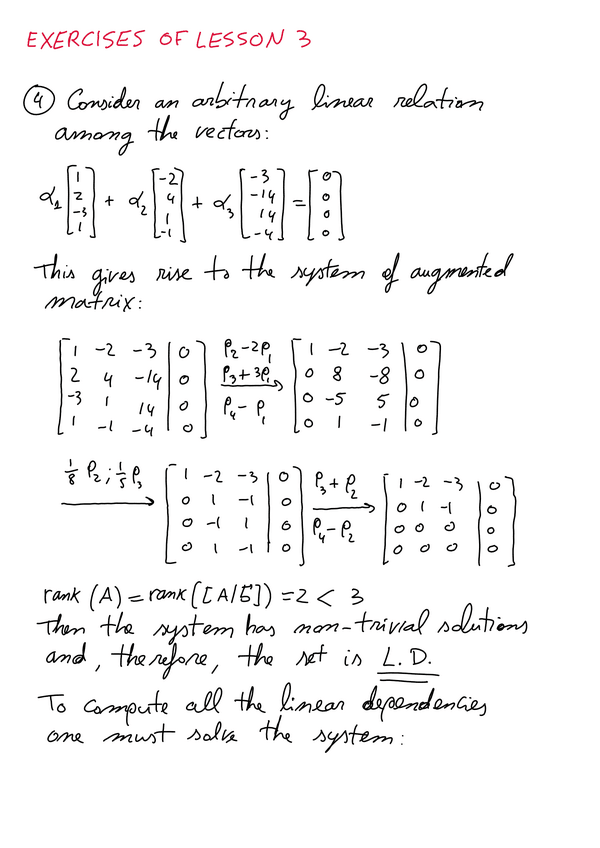 EXERCISES OF LESSON 3
④ Consider an arbitrary linear relation
among the vectors:
α₁ [1 2 -3 1] + α₂ [-2 4 1 -1] + α₃ [-3 -14 14 -4] = [0 0 0 0]
This gives rise to the system of augmented
matrix:
[1 -2 -3 | 0] ρ₂-2ρ₁ [1 -2 -3 | 0]
[2 4 -14 | 0] ρ₃+3ρ₁ [0 8 -8 | 0]
[-3 1 14 | 0] ρ₄-ρ₁ [0 -5 5 | 0]
[1 -1 -4 | 0] [0 1 -1 | 0]
1/8 ρ₂; 1/5 ρ₃ [1 -2 -3 | 0] ρ₃+ρ₂ [1 -2 -3 | 0]
[0 1 -1 | 0] ρ₄-ρ₂ [0 1 -1 | 0]
[0 -1 1 | 0] [0 0 0 | 0]
[0 1 -1 | 0] [0 0 0 | 0]
rank (A) = rank ([A|b̄]) = 2 < 3
Then the system has non-trivial solutions
and, therefore, the set is L.D.
To compute all the linear dependencies
one must solve the system: